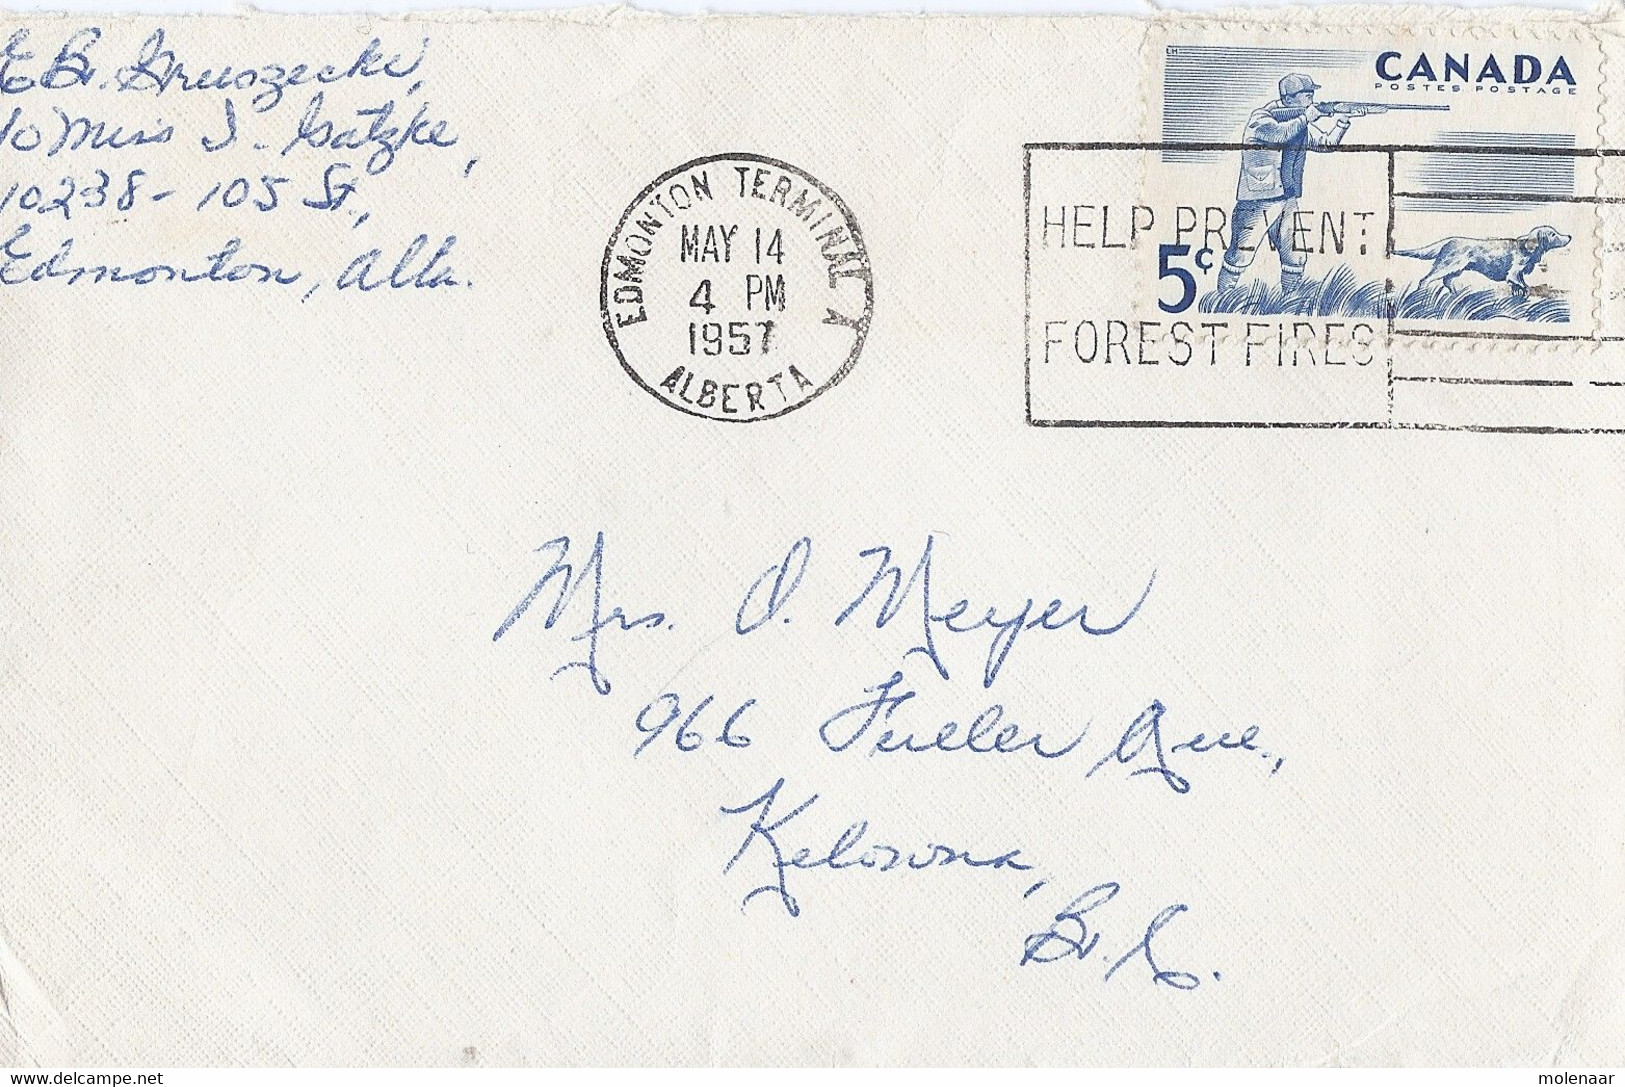 E. B. Gruszecki,
c/o Miss I. Gatzke,
10238 - 105 St.,
Edmonton, Alta.
EDMONTON TERMINAL A
MAY 14
4 PM
1957
ALBERTA
CANADA
POSTES POSTAGE
5¢
HELP PREVENT
FOREST FIRES
Mrs. O. Meyer
966 Fuller Ave.,
Kelowna,
B.C.
delcampe.net
molenaar